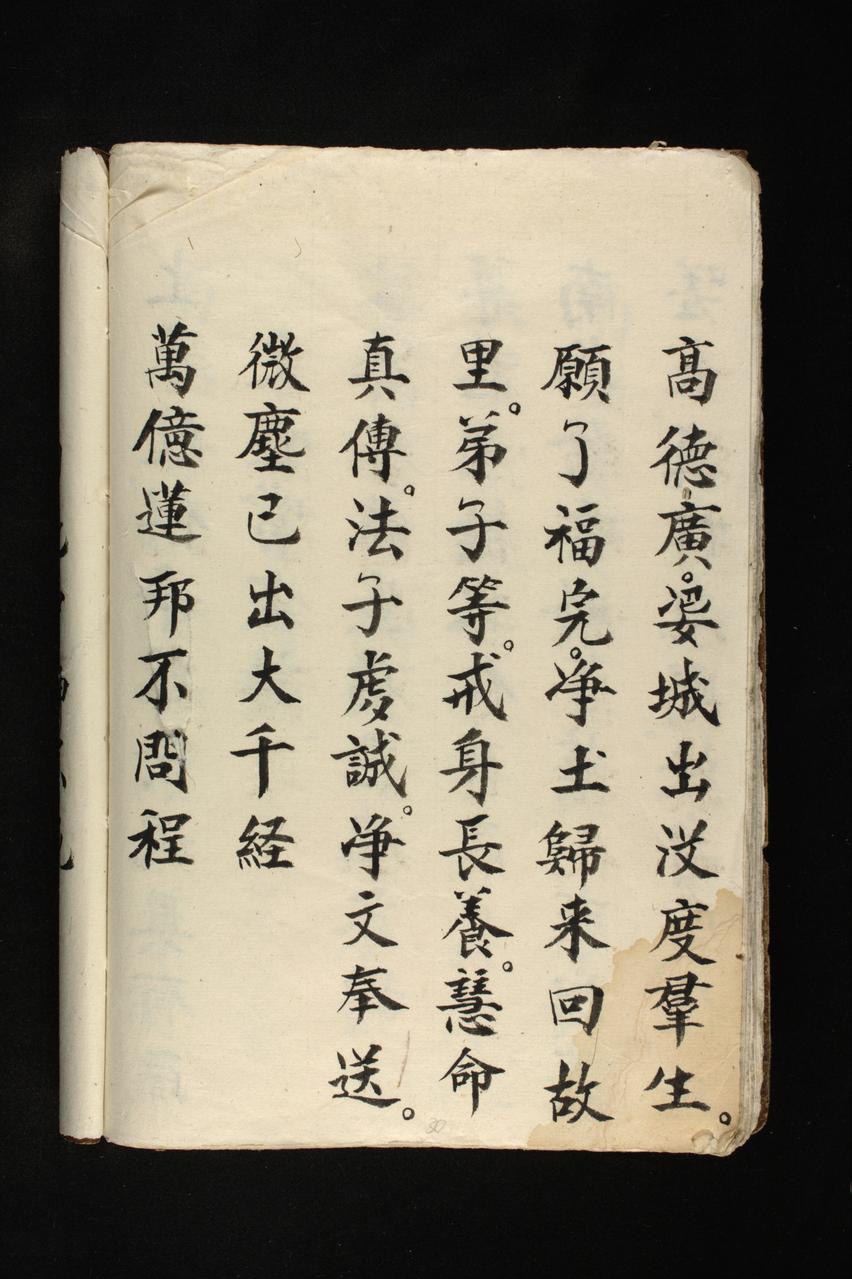 高德廣。娑城出没度羣生。
願了福完。净土歸来回故
里。弟子等。戒身長養。慧命
真傳。法子虔誠。净文奉送。
微塵已出大千経
萬億蓮邦不問程